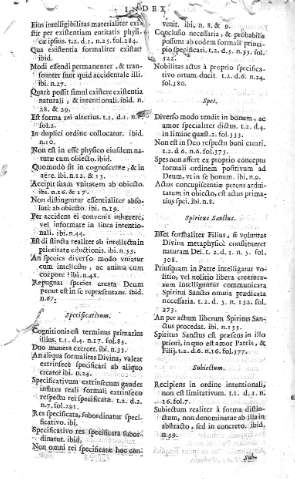 INDEX
Eius intelligibilitas materialiter exi-
stit per existentiam entitatis physi-
cæ ipsius. t.2. d.1. n.25. fol.284.
Qua existentia formaliter existat
ibid.
Modi essendi permanenter, & trans-
ibi. n.27.
naturali, & intentionali. ibid. n.
28. & 29.
Est forma rei alterius. t.2. d.1. n.
fol.
In duplici ordine collocatur. ibid.
n.10.
Non est in esse physico eiusdem na-
turæ cum obiecto. ibid.
Quomodo sit in cognoscente, & in
aëre. ibi. n.12. & 13.
Accipit suam valorem ab obiecto.
ibi. n.16. & 17.
Non distinguitur essentialiter abso-
lutè ab obiecto. ibi. n.19.
Per accidens ei convenit inhærere,
vel informare in linea intentio-
nali. ibi. n.44.
Est distincta realiter ab intellectu in
ibi. n.55.
An species diverso modo uniatur
cum intellectu, ac anima cum
corpore? ibi. n.48.
Repugnat species creata Deum
prout est in se repræsentans. ibid.
n.67.
Specificativum.
Cognitionis est terminus primarius
illius. t.1. d.4. n.17. fol.85.
Duo munera exercet. ibi. n.31.
An aliqua formalitas Divina, valeat
extrinsecè specificari ab aliquo
creato? ibi. n.24.
Specificativum extrinsecum gaudet
unitate reali formali extrinseca
respectu rei specificatæ. t.2. d.2.
n.7. fol.291.
Res specificata, subordinatur speci-
ficativo. ibi.
Specificativo res specificata subor-
dinatur. ibid.
Non omni rei specificatæ hoc con-
venit. ibi. n. 8. & 9.
Conclusio necessaria, & probabilis
possunt ab eodem formali princi-
pio specificari. t.2. d.5. n.35. fol.
322.
Nobilitas actus à proprio specifica-
tivo ortum ducit. t.2. d.6. n.24.
fol.380.
Spes.
Diverso modo tendit in bonum, ac
amor specialiter dictus. t.2. d.4.
in limine quæst. 2. fol.333.
Non est in Deo respectu boni creati.
t.2. d.6. n.6. fol.373.
Spes non affert ex proprio conceptu
formali ordinem positivum ad
Deum, ut in se bonum. ibi. n.10.
Actus concupiscentiæ petens ardui-
tatem in obiecto, est actus prima-
rius spei. ibi. n.8.
Spiritus Sanctus.
Esset formaliter Filius, si voluntas
Divina metaphysicè constitueret
naturam Dei. t.2. d.1. n.3. fol.
308.
Priusquam in Patre intelligatur vo-
litio, vel relatio libera contingens
intelligantur communicata
Spiritui Sancto omnia prædicata
necessaria. t.2. d.3. n.132. fol.
273.
An per actum liberum Spiritus San-
ctus procedat. ibi. n.133.
Spiritus Sanctus est præcisè in illo
priori, in quo est amor Patris, &
Filij. t.2. d.2. n.16. fol.177.
Subiectum.
Recipiens in ordine intentionali,
non est limitativum. t.1. d.1. n.
16. fol.7.
Subiectum realiter à forma distin-
ctum, non denominatur ab illa in
abstracto, sed in concreto. ibid.
n.39.
Sub-